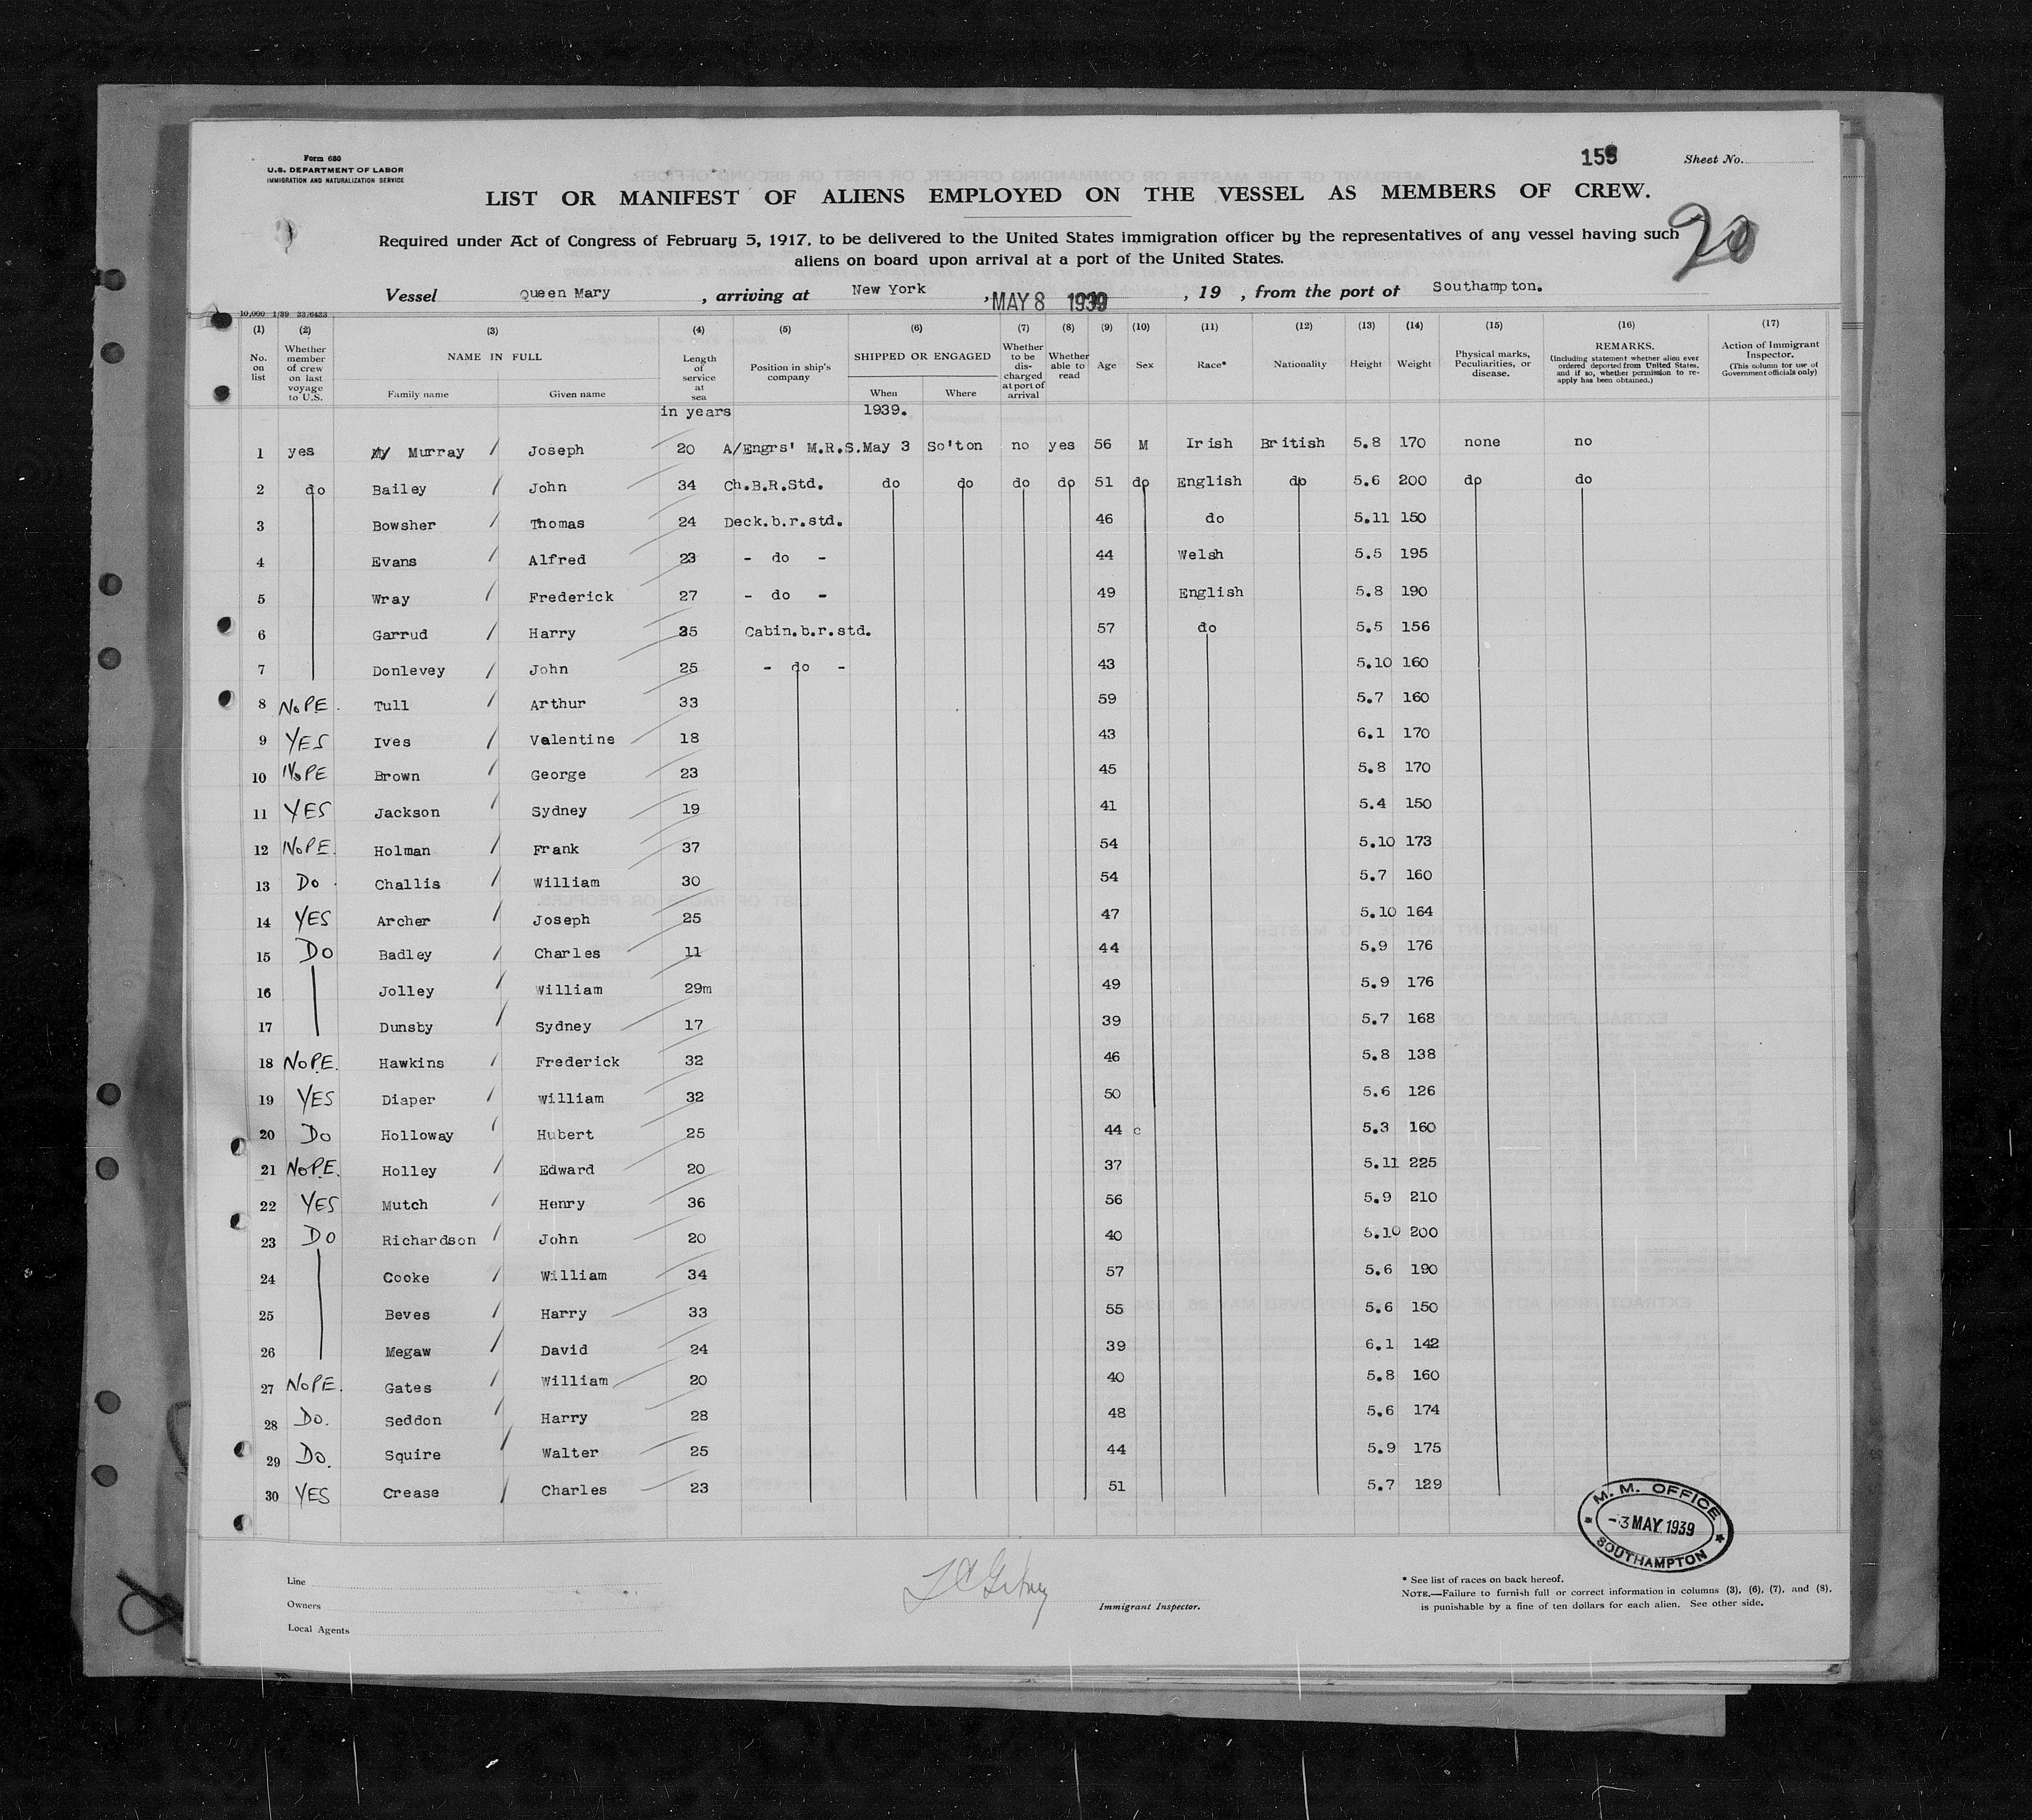 Form 680
U.S. DEPARTMENT OF LABOR
IMMIGRATION AND NATURALIZATION SERVICE
155 Sheet No.
LIST OR MANIFEST OF ALIENS EMPLOYED ON THE VESSEL AS MEMBERS OF CREW.
20
Required under Act of Congress of February 5, 1917, to be delivered to the United States immigration officer by the representatives of any vessel having such
aliens on board upon arrival at a port of the United States.
Vessel Queen Mary, arriving at New York, MAY 8 1939, 19 , from the port of Southampton.
10,000 1/39 33/6433
(1) (2) (3) (4) (5) (6) (7) (8) (9) (10) (11) (12) (13) (14) (15) (16) (17)
No. on list
Whether member of crew on last voyage to U.S.
NAME IN FULL
Family name Given name
Length of service at sea
Position in ship's company
SHIPPED OR ENGAGED
When Where
Whether to be discharged at port of arrival
Whether able to read
Age
Sex
Race*
Nationality
Height
Weight
Physical marks, Peculiarities, or disease.
REMARKS.
(Including statement whether alien ever ordered deported from United States, and if so, whether permission to re-apply has been obtained.)
Action of Immigrant Inspector.
(This column for use of Government officials only)
in years 1939.
1 yes Murray Joseph 20 A/Engrs' M.R.S. May 3 So'ton no yes 56 M Irish British 5.8 170 none no
2 do Bailey John 34 Ch.B.R.Std. do do do do 51 do English do 5.6 200 do do
3 Bowsher Thomas 24 Deck.b.r.std. 46 do 5.11 150
4 Evans Alfred 23 - do - 44 Welsh 5.5 195
5 Wray Frederick 27 - do - 49 English 5.8 190
6 Garrud Harry 35 Cabin.b.r.std. 57 do 5.5 156
7 Donlevey John 25 - do - 43 5.10 160
8 NOPE. Tull Arthur 33 59 5.7 160
9 YES Ives Valentine 18 43 6.1 170
10 NOPE Brown George 23 45 5.8 170
11 YES Jackson Sydney 19 41 5.4 150
12 NOPE. Holman Frank 37 54 5.10 173
13 Do. Challis William 30 54 5.7 160
14 YES Archer Joseph 25 47 5.10 164
15 Do Badley Charles 11 44 5.9 176
16 Jolley William 29m 49 5.9 176
17 Dunsby Sydney 17 39 5.7 168
18 NOPE. Hawkins Frederick 32 46 5.8 138
19 YES Diaper William 32 50 5.6 126
20 Do Holloway Hubert 25 44 c 5.3 160
21 NOPE. Holley Edward 20 37 5.11 225
22 YES Mutch Henry 36 56 5.9 210
23 Do Richardson John 20 40 5.10 200
24 Cooke William 34 57 5.6 190
25 Beves Harry 33 55 5.6 150
26 Megaw David 24 39 6.1 142
27 NOPE. Gates William 20 40 5.8 160
28 Do. Seddon Harry 28 48 5.6 174
29 Do. Squire Walter 25 44 5.9 175
30 YES Crease Charles 23 51 5.7 129
M. M. OFFICE
-3 MAY 1939
SOUTHAMPTON
Line
Owners
Local Agents
Immigrant Inspector.
* See list of races on back hereof.
NOTE.—Failure to furnish full or correct information in columns (3), (6), (7), and (8),
is punishable by a fine of ten dollars for each alien. See other side.